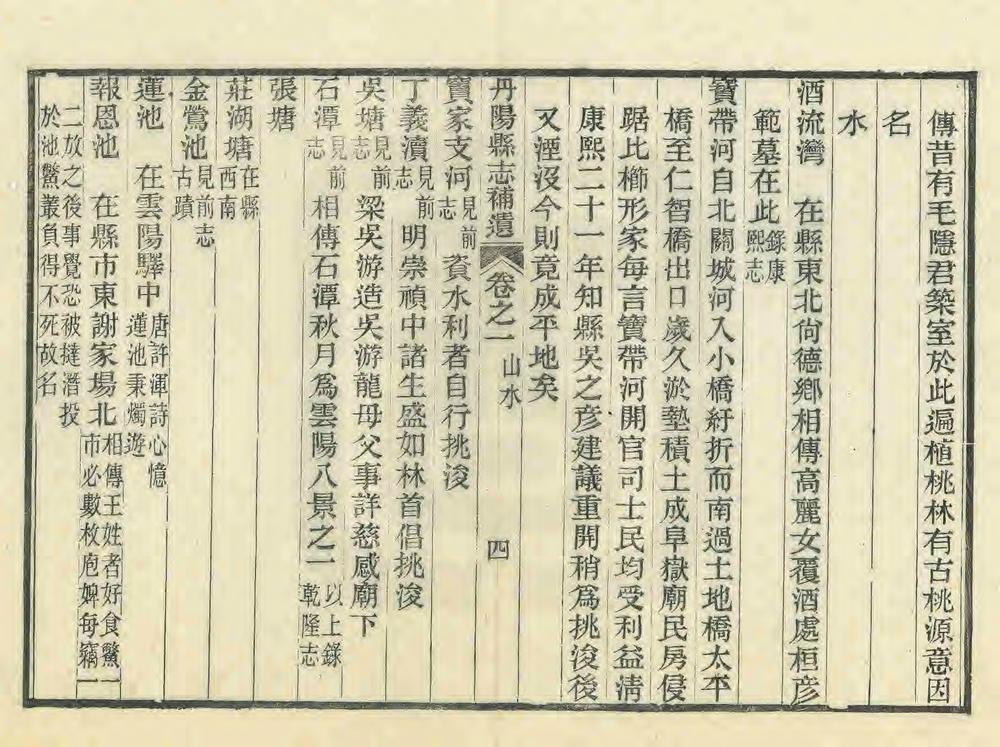 傳昔有毛隱君築室於此遍植桃林有古桃源意因
名
水
酒流灣　在縣東北尙德鄉相傳高麗女覆酒處桓彥
範墓在此錄康熙志
寶帶河自北關城河入小橋紆折而南過土地橋太平
橋至仁智橋出口歲久淤墊積土成阜獄廟民房侵
踞比櫛形家每言寶帶河開官司士民均受利益淸
康熙二十一年知縣吳之彥建議重開稍爲挑浚後
又湮沒今則竟成平地矣
丹陽縣志補遺　卷之二　山水　四
竇家支河見前志　資水利者自行挑浚
丁義瀆見前志　明崇禎中諸生盛如林首倡挑浚
吳塘見前志　梁吳游造吳游龍母父事詳慈感廟下
石潭見前志　相傳石潭秋月爲雲陽八景之一　以上錄乾隆志
張塘
莊湖塘在縣西南
金鶯池見前志古蹟
蓮池　在雲陽驛中　唐許渾詩心憶蓮池秉燭遊
報恩池　在縣市東謝家場北　相傳王姓者好食鱉一市必數枚庖婢每竊一
二放之後事覺恐被撻潛投
於池鱉叢負得不死故名